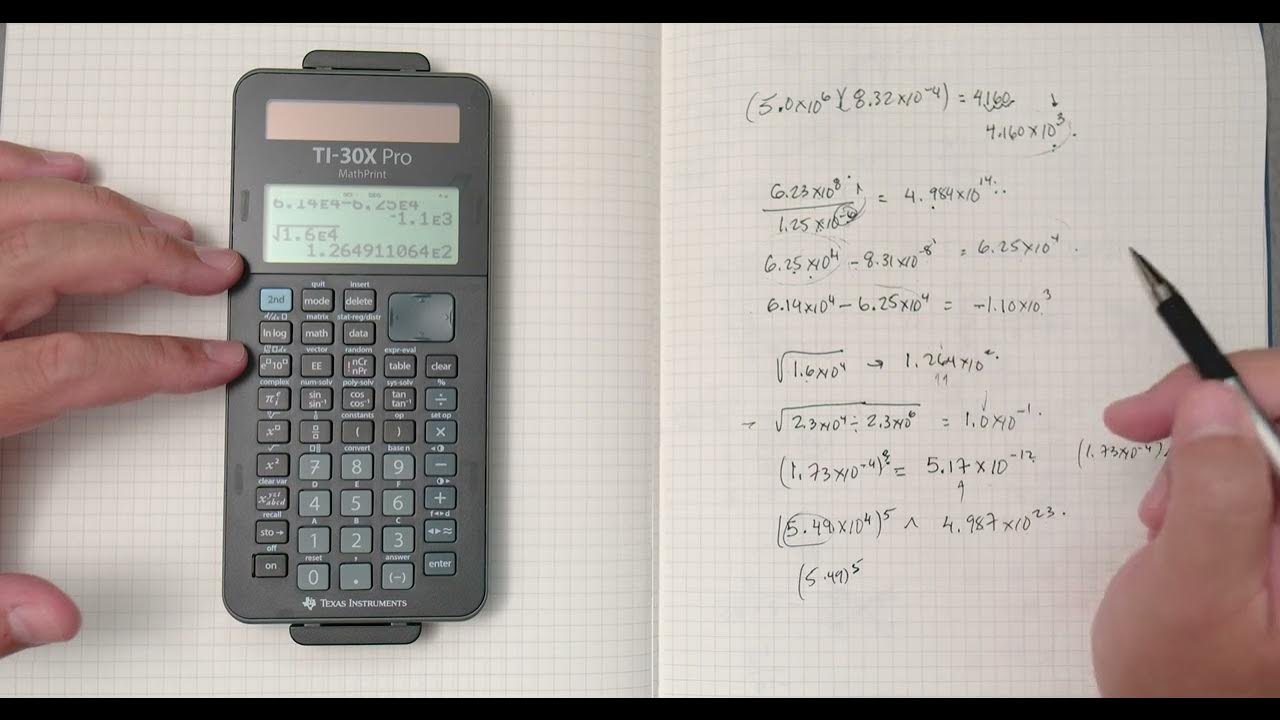 TI-30X Pro
MathPrint
6.14E4-6.25E4
-1.1E3
√1.6E4
1.264911064E2
quit insert
2nd mode delete
d/dx□ matrix stat-reg/distr
ln log math data
vector random expr-eval
e□ 10□ EE !nCr nPr table clear
complex num-solv poly-solv sys-solv %
π e i sin sin⁻¹ cos cos⁻¹ tan tan⁻¹ ÷
constants op set op
x□ ( ) ×
√ convert base n
x² 7 8 9 −
clear var D E F
x y z t a b c d 4 5 6 +
recall A B C f◄►d
sto→ 1 2 3 ◄►≈
off reset , answer
on 0 . (−) enter
TEXAS INSTRUMENTS
(5.0×10⁶)(8.32×10⁻⁴) = 4160
4.160×10³.
6.23×10⁸
1.25×10⁻⁶ = 4.984×10¹⁴
6.25×10⁴ - 8.31×10⁻⁸ = 6.25×10⁴
6.14×10⁴ - 6.25×10⁴ = -1.10×10³
√1.6×10⁴ → 1.264×10²
√2.3×10⁴ ÷ 2.3×10⁶ = 1.0×10⁻¹.
(1.73×10⁻⁴)³ = 5.17×10⁻¹² (1.73×10⁻⁴)
(5.49×10⁴)⁵ ∧ 4.987×10²³.
(5.49)⁵